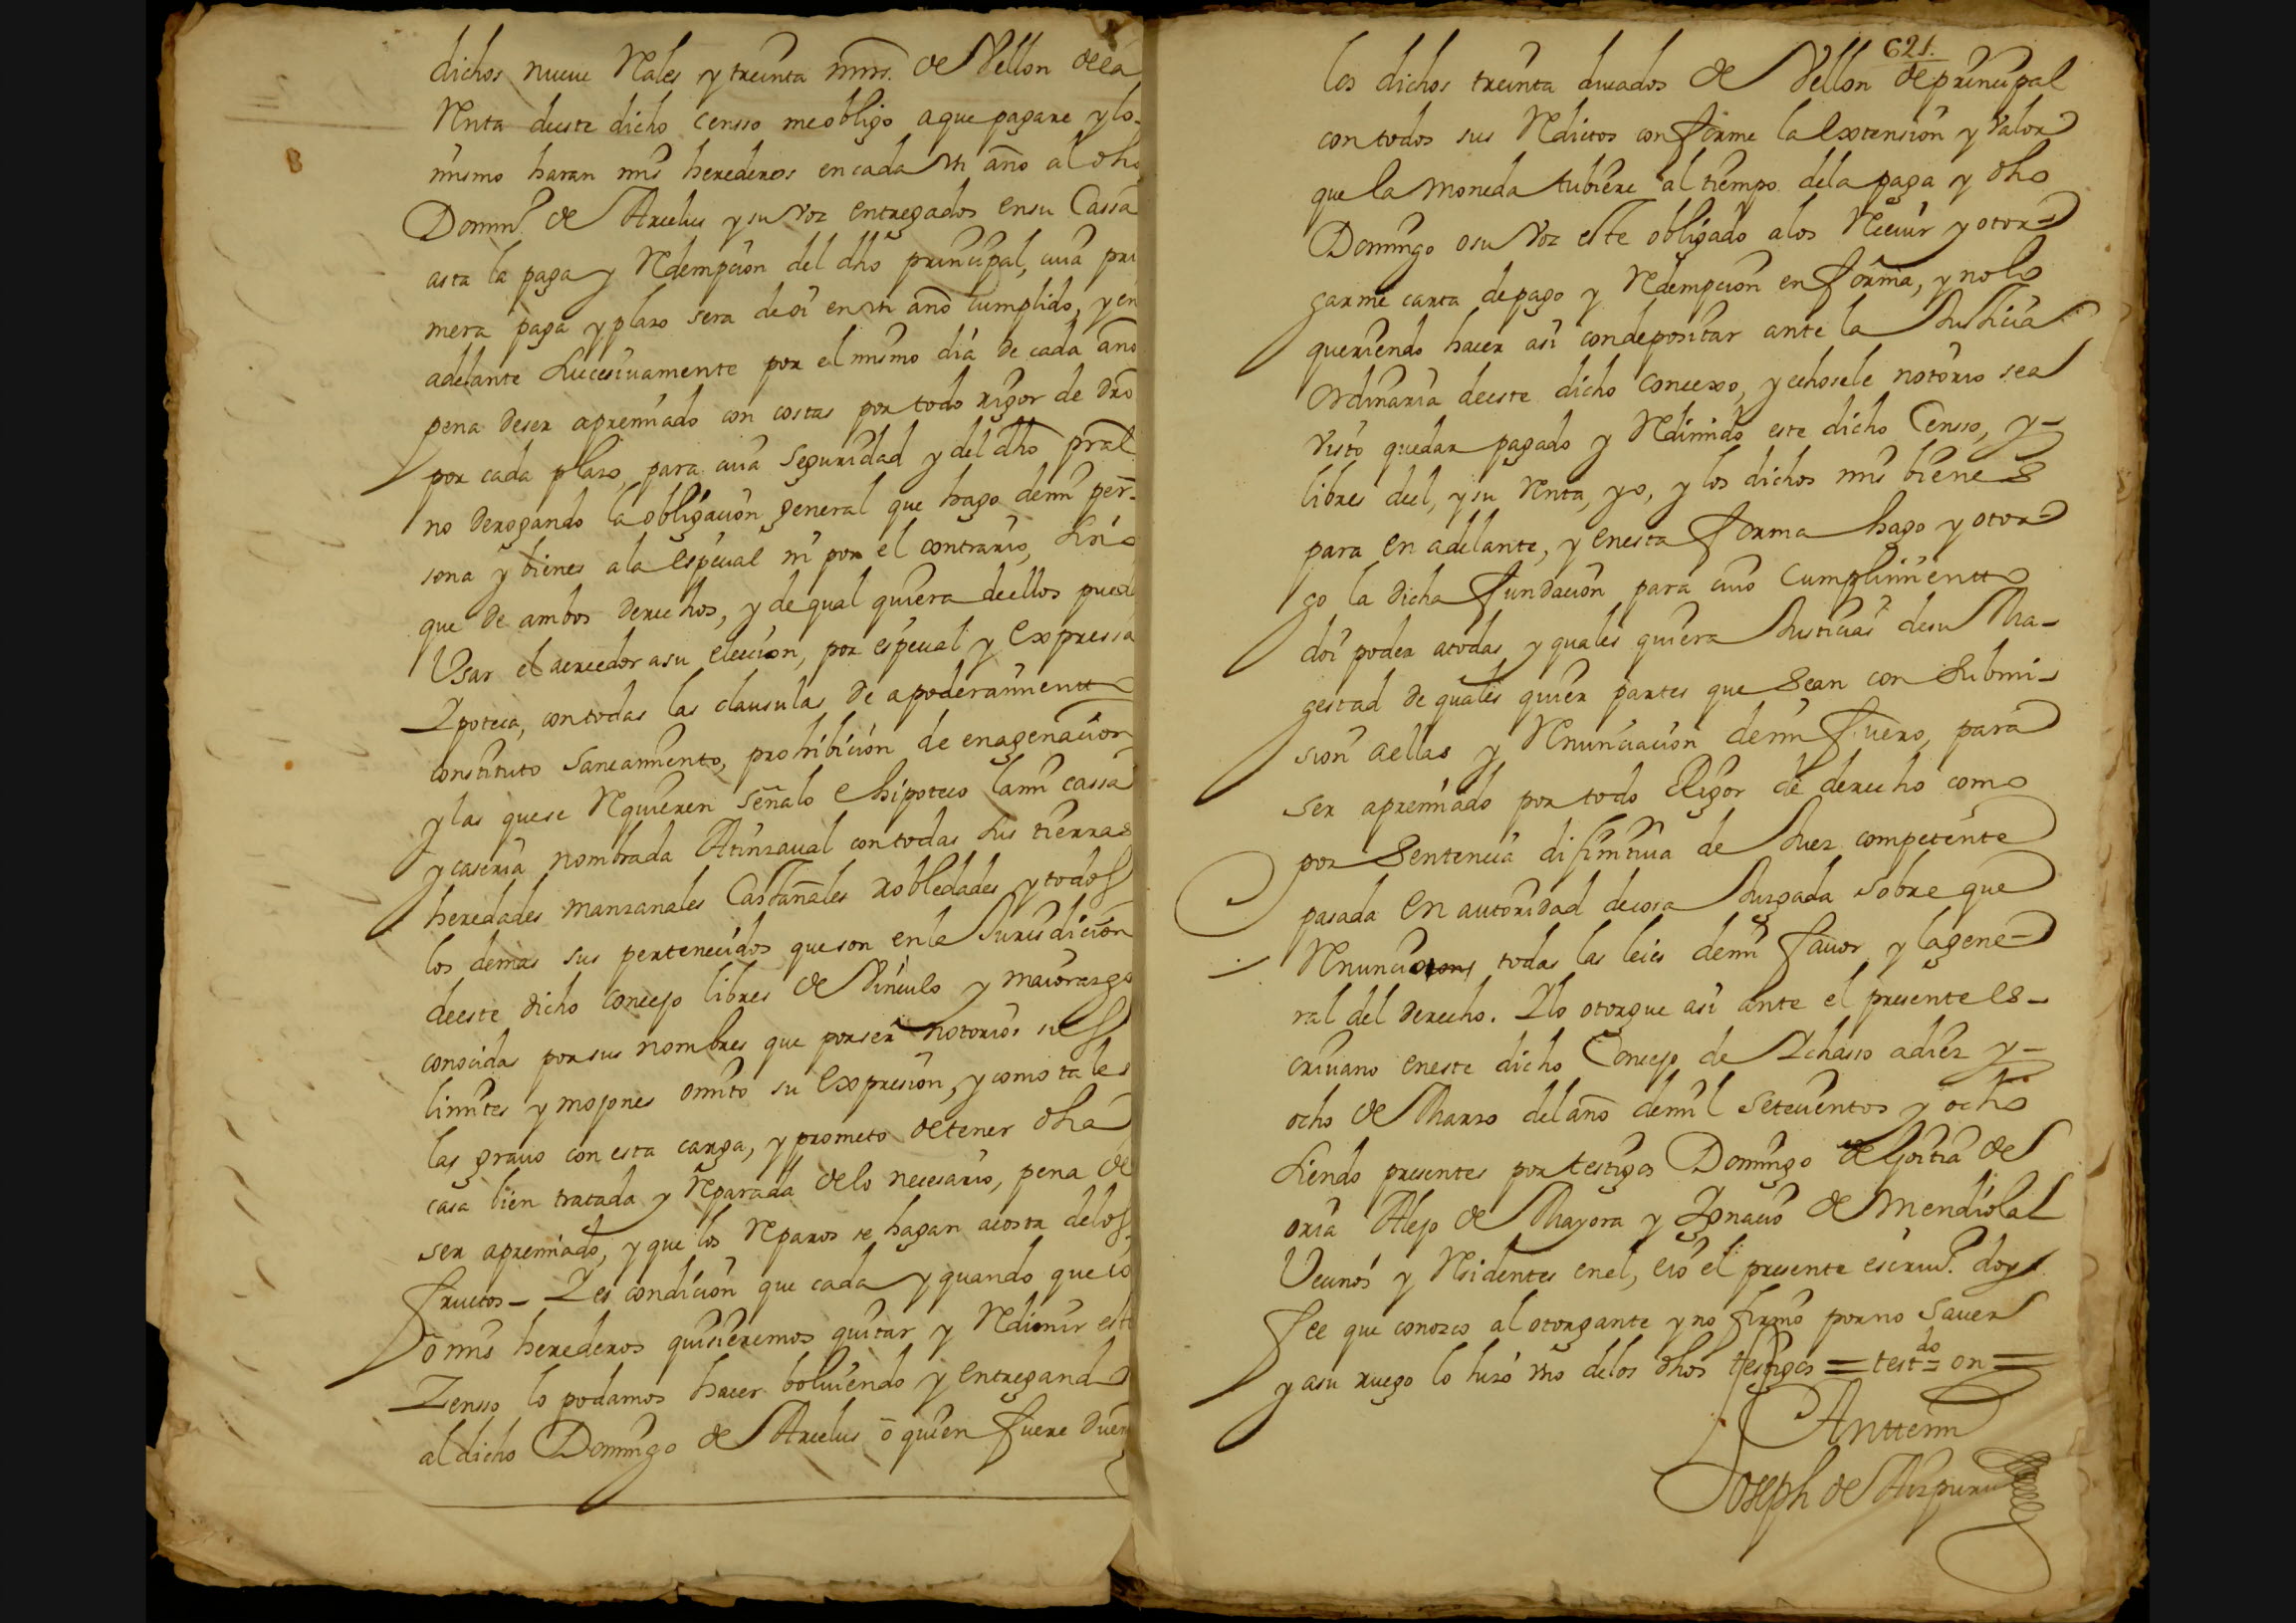 dichos nueue Rales y treinta mrs. de Vellon de la
Renta deeste dicho Censso me obligo a que pagare y lo
mismo haran mis herederos en cada vn año al dho
Domin.º de Arcelus y su voz entregados en su Cassa
asta la paga y Redempcion del dho principal, cuia pri
mera paga y plazo sera de oi en vn año cumplido, y en
adelante sucesiuamente por el mismo dia de cada año
pena de ser apremiado con costas por todo rigor de dro
por cada plazo, para cuia seguridad y del dho pral
no derogando la obligacion general que hago de mi per-
sona y bienes a la especial ni por el contrario, sino
que de ambos derechos, y de qual quiera deellos pueda
Vsar el acreedor a su eleccion, por especial y expressa
Ipoteca, con todas las clausulas de apoderamiento
constituto saneamiento, prohibicion de enagenacion
y las que se Requieren señalo e hipoteco la mi cassa
y caseria nombrada Atinzaual con todas sus tierras
heredades manzanales Castañales robledades y todos
los demas sus pertenecidos que son en la Jurisdicion
deeste dicho concejo libres de Vinculo y maiorazgo
conocidas por sus nombres que por ser notorios sus
limites y mojones omito su expresion, y como tales
las grauo con esta carga, y prometo de tener dha
casa bien tratada y Reparada de lo necesario, pena de
ser apremiado, y que los Reparos se hagan a costa de los
fructos - Y es condicion que cada y quando que io
ò mis herederos quisieremos quitar y Redimir este
Zensso lo podamos hacer boluiendo y entregando
al dicho Domingo de Arcelus ò quien fuere dueño
621.
los dichos treinta ducados de Vellon de principal
con todos sus Redictos conforme la extension y valor
que la moneda tubiere al tiempo de la paga y dho
Domingo o su voz este obligado a los Reciuir y otor-
garme carta de pago y Redempcion en forma, y no lo
queriendo hacer asi con depositar ante la Justicia
Ordinaria deeste dicho concexo, y echosele notorio sea
visto quedar pagado y Redimido este dicho Censso, y-
libres deel, y su Renta, yo, y los dichos mis bienes
para en adelante, y en esta forma hago y otor-
go la dicha fundacion para cuio cumplimiento
doi poder a todas y quales quiera Justicias de su Ma-
gestad de quales quier partes que sean con submi-
sion a ellas y Renunciacion de mi fuero, para
ser apremiado por todo Rigor de derecho como
por sentencia difinitiua de Juez competente
pasada en autoridad de cosa Juzgada sobre que
Renuncio todas las leies de mi fauor y la gene-
ral del derecho. Y lo otorgue asi ante el presente es-
criuano en este dicho Concejo de Ichasso a diez y-
ocho de Marzo del año de mil setecientos y ocho
siendo presentes por testigos Domingo de Goitia de
oria Alejo de Mayora y Ignacio de Mendiola
Vecinos y Residentes en el, e io el presente escriu.º doy
fee que conozco al otorgante y no firmo por no sauer
y a su ruego lo hizo vno de los dhos testigos = testdo = on =
Antte mi
Joseph de Aizpuru